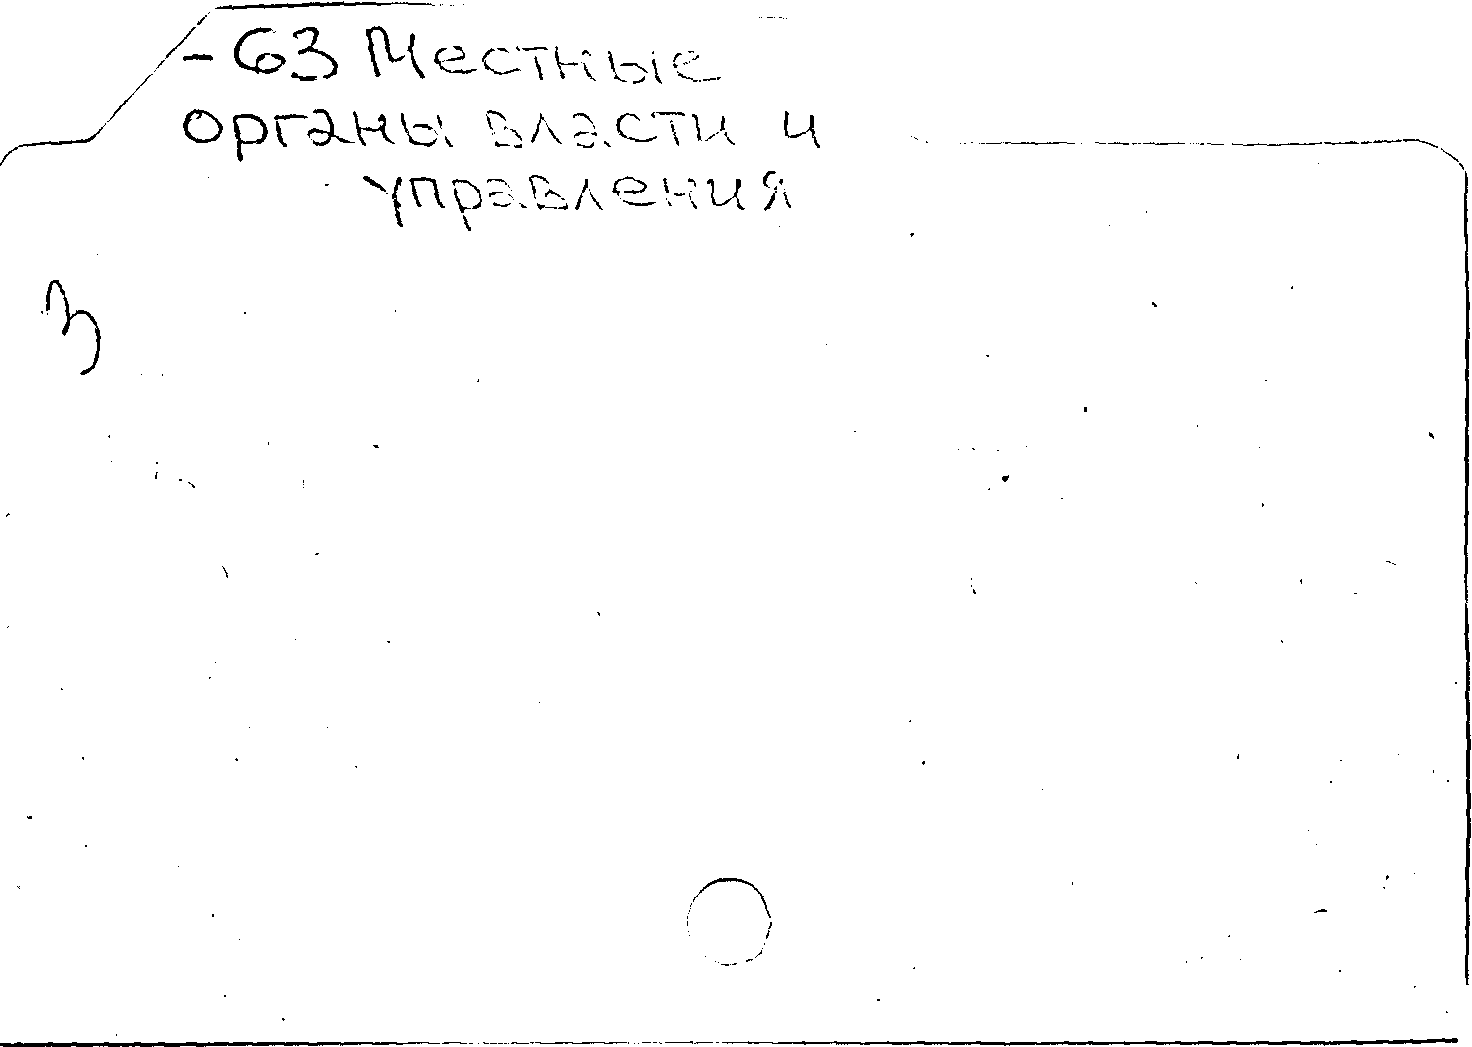 -63 Местные
органы власти и
управления